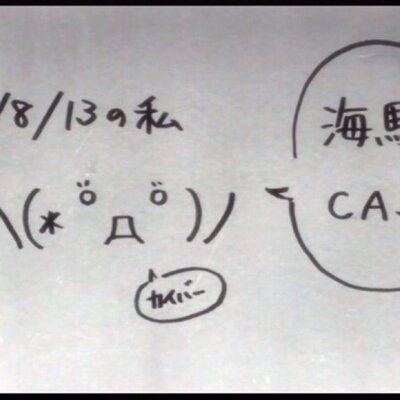 /8/13の私
海馬
CA
\(* ö Д ö )/
カイバー